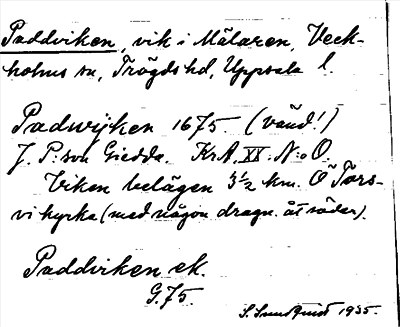 Paddviken, vik i Mälaren, Veck-
holms sn, Trögds hd, Uppsala l.
Padwijken 1675. (vänd!)
J. P:son Giedda. KrA, XX. N:o 0.
Viken belägen 3½ km. Ö Tors-
vi kyrka (med någon dragn. åt söder).
Paddviken ek.
G.75.
S. Sundqvist 1935.